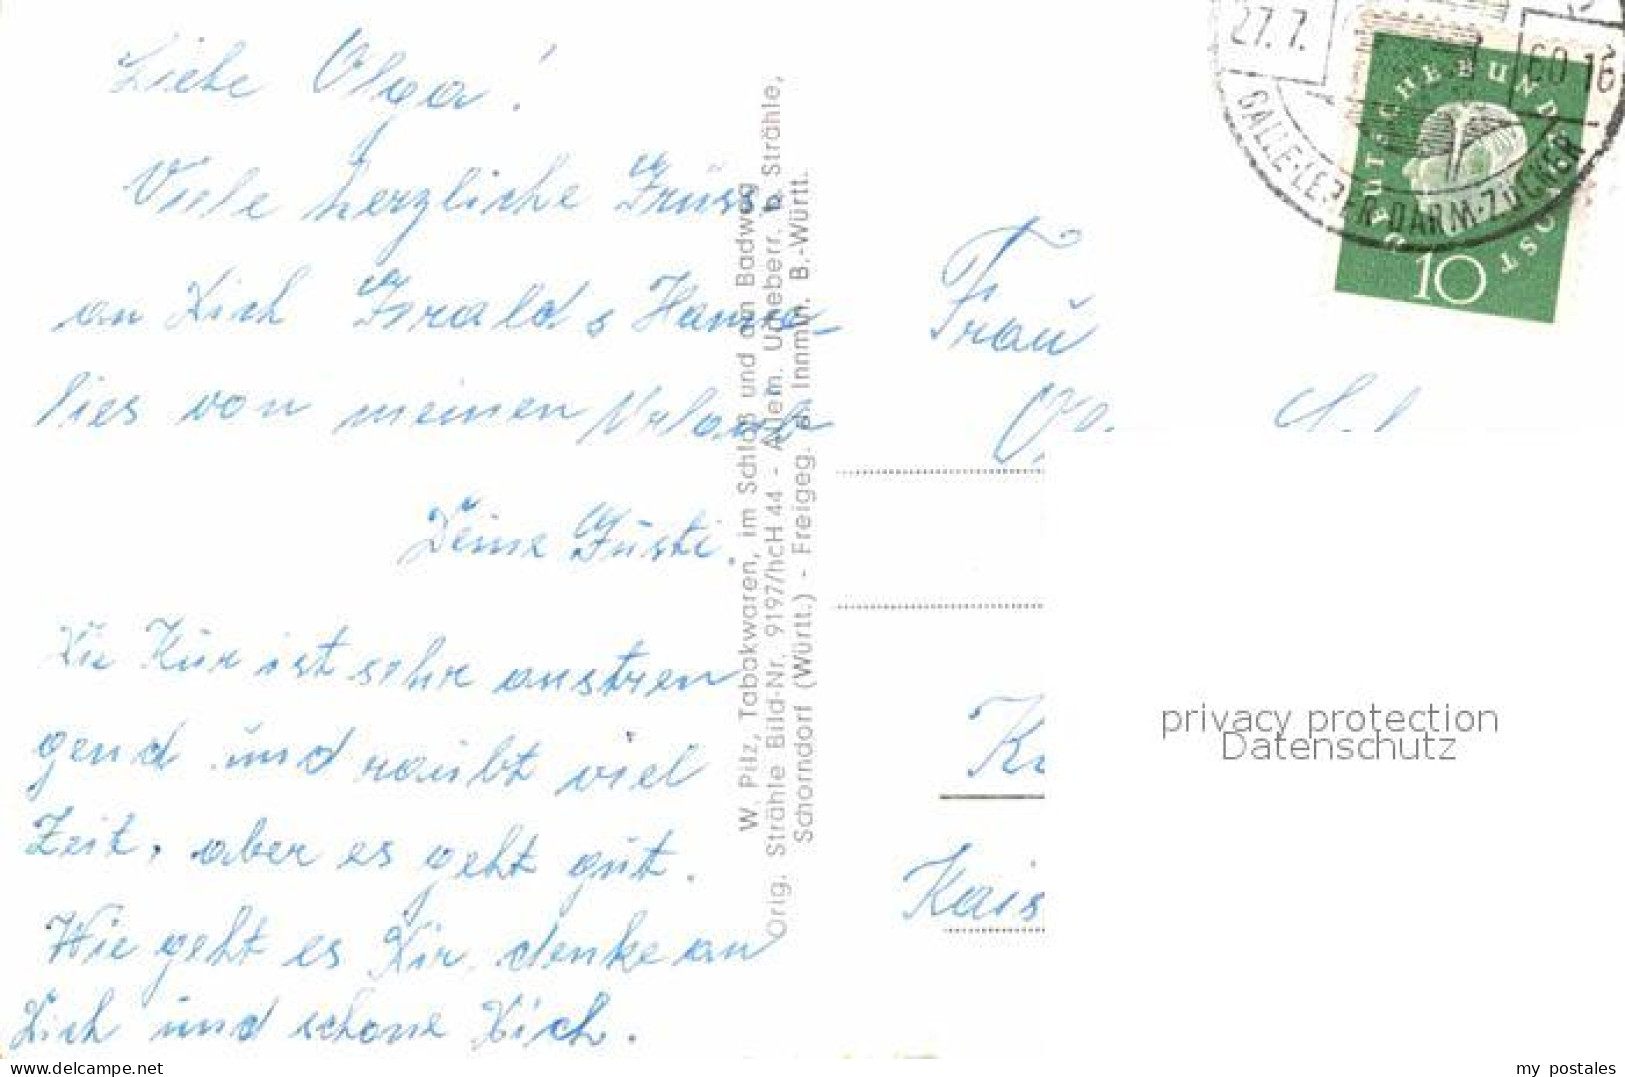 Liebe Olga!
Viele herzliche Grüsse
an Dich Gerald & Hanne-
lies von meinen Urlaub
Deine Gusti.
Die Kur ist sehr anstren
gend und raubt viel
Zeit, aber es geht gut.
Wie geht es Dir, denke an
Dich und schone Dich.
W. Pilz, Tabakwaren, im Schloß und am Badweg
Orig. Strähle Bild-Nr. 9197/hcH 44 - Allein. Urheberr. b. Strähle,
Schorndorf (Württ.) - Freigeg. d. Innmin. B.-Württ.
27.7. 60 16
GALLE·LEBER·DARM·ZUCKER
DEUTSCHE BUNDESPOST
10
Frau
Kais
privacy protection
Datenschutz
bahnbuecherwurm.com
my_postales